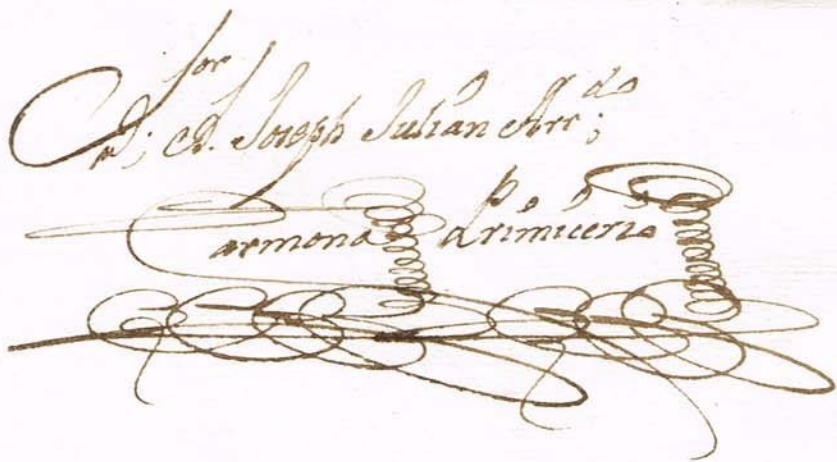 D; D. Joseph Julian Arr;do
Carmona Primicerio